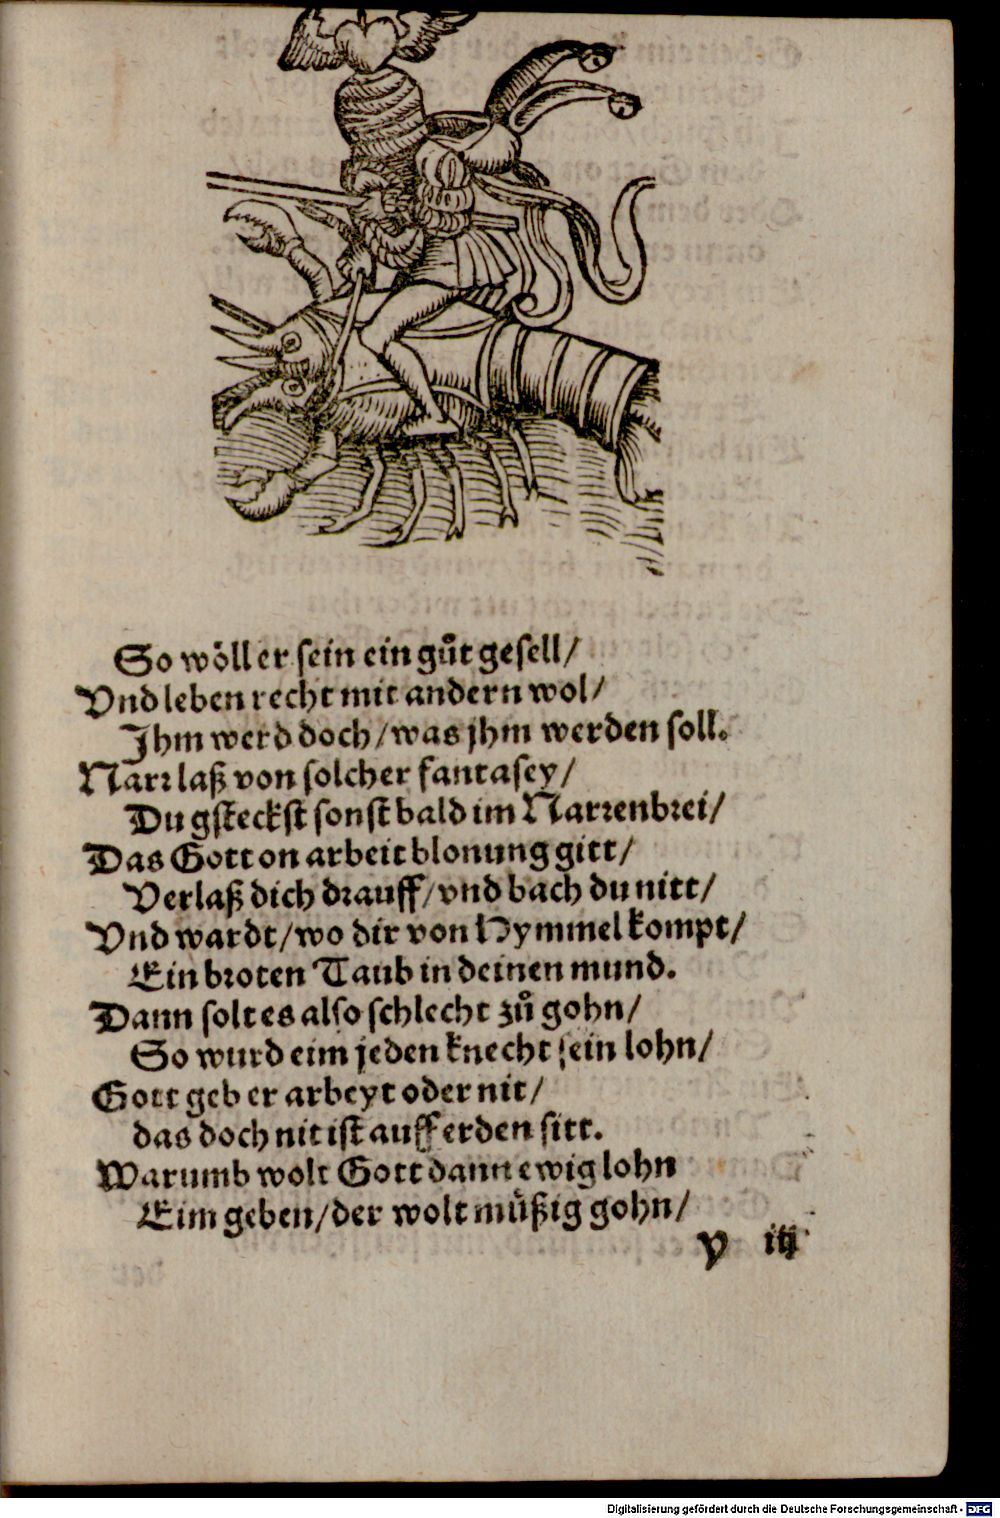 So wöll er sein ein gůt gesell/
Vnd leben recht mit andern wol/
Jhm werd doch/was jhm werden soll.
Narr laß von solcher fantasey/
Du gsteckst sonst bald im Narrenbrei/
Das Gott on arbeit blonung gitt/
Verlaß dich drauff/vnd bach du nitt/
Vnd wardt/wo dir von Hymmel kompt/
Ein broten Taub in deinen mund.
Dann solt es also schlecht zů gohn/
So wurd eim jeden knecht sein lohn/
Gott geb er arbeyt oder nit/
das doch nit ist auff erden sitt.
Warumb wolt Gott dann ewig lohn
Eim geben/der wolt müßig gohn/
y iij
Digitalisierung gefördert durch die Deutsche Forschungsgemeinschaft - DFG